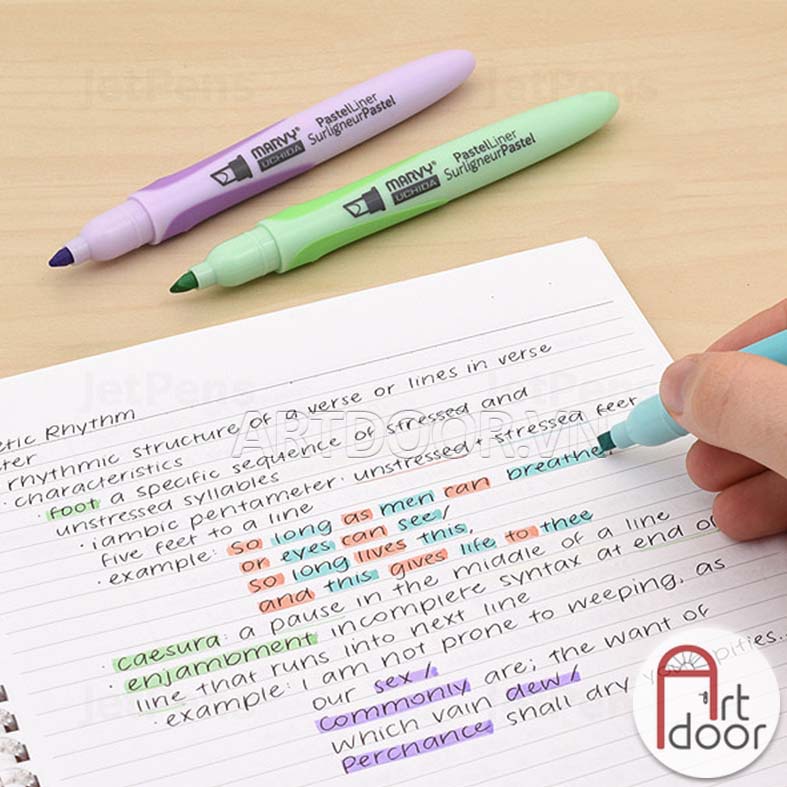 MARVY®
UCHIDA
PastelLiner
SurligneurPastel
MARVY®
UCHIDA
PastelLiner
SurligneurPastel
JetPens
JetPens
Rhythm
rhythmic structure of a verse or lines in verse
· characteristics
· foot a specific sequence of stressed and
unstressed syllables
· iambic pentameter: unstressed + stressed feet
five feet to a line
· example: so long as men can breathe
or eyes can see/
so long lives this,
and this gives life to thee
· caesura: a pause in the middle of a line
· enjambment incomplete syntax at end of
line that runs into next line
· example: I am not prone to weeping, as
our sex/
commonly are; the want of
which vain dew/
perchance shall dry
ARTDOOR.VN
Art
door